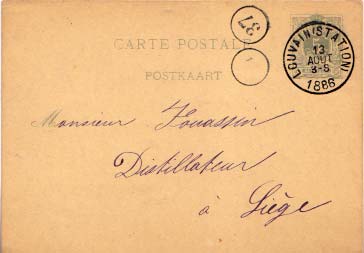 37
CARTE POSTALE
POSTKAART
LOUVAIN (STATION)
13
AOUT
3-S
1886
Monsieur Fouassin
Distillateur
à Liège